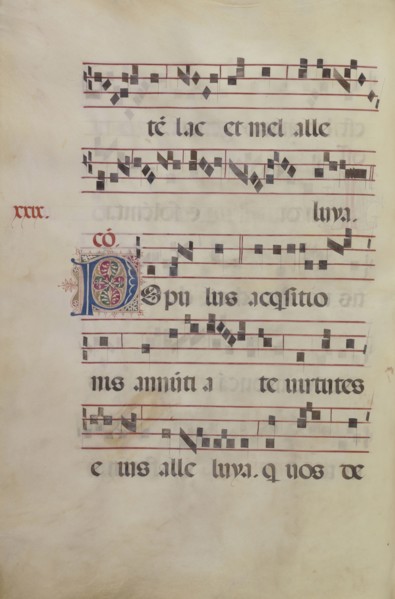 té lac et mel alle
luya.
xxix.
cō.
Popu lus acqsitio
nis annūti a te uirtutes
e ius alle luya. q uos de